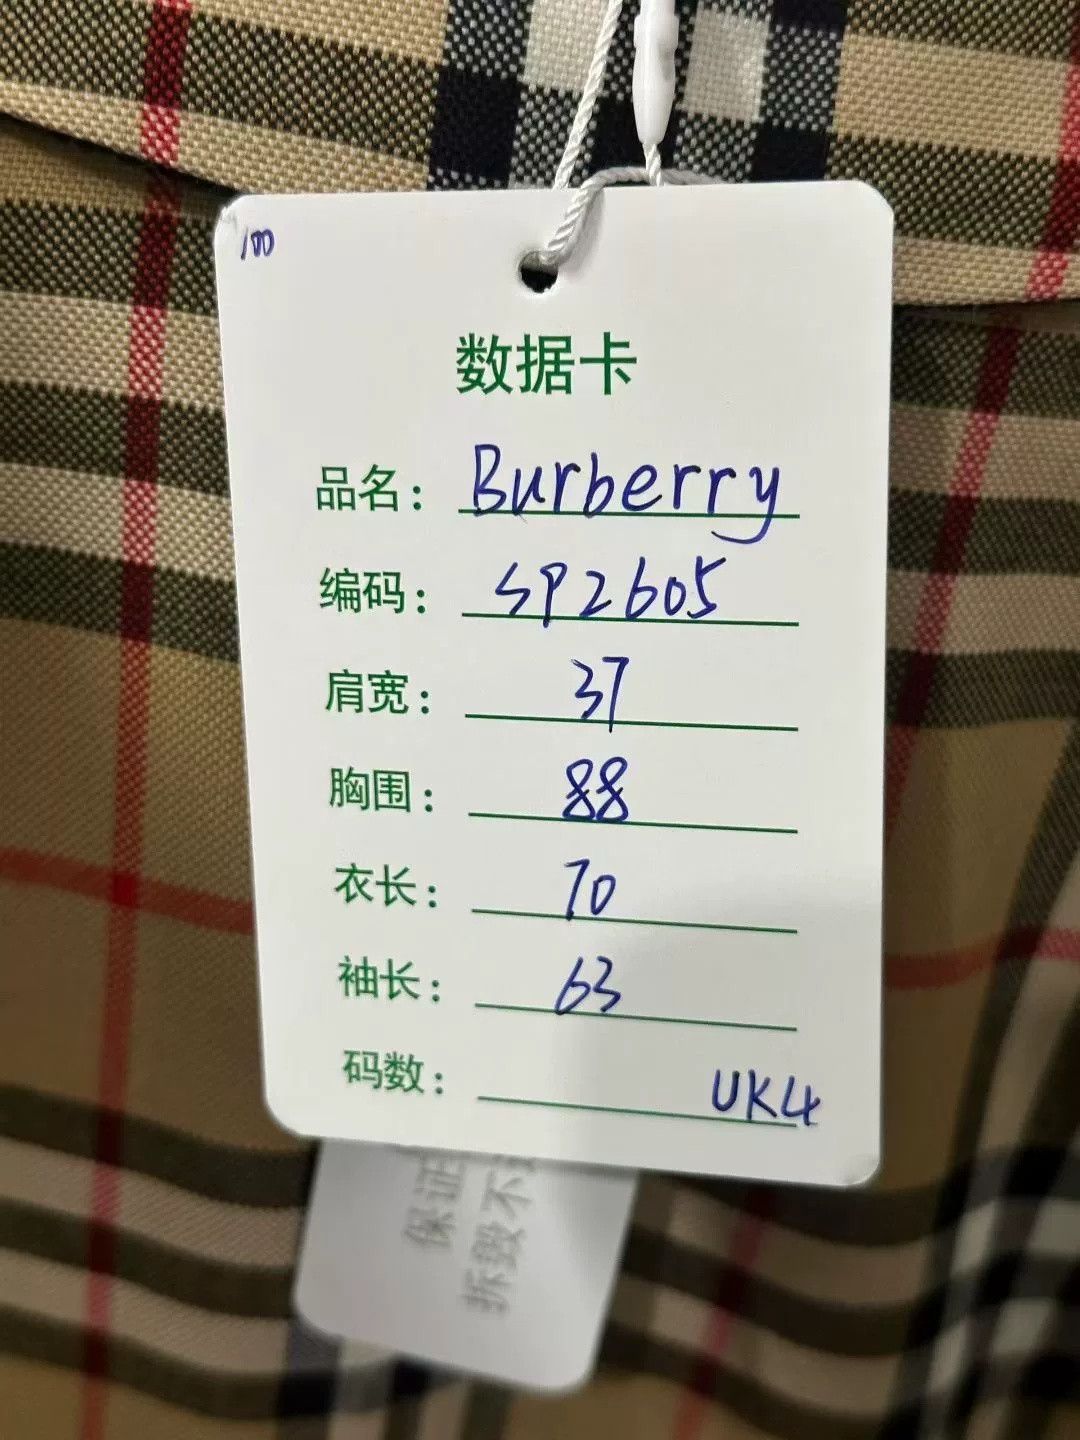 100
数据卡
品名: Burberry
编码: SP2605
肩宽: 37
胸围: 88
衣长: 70
袖长: 63
码数: UK4
保证
拆毁不